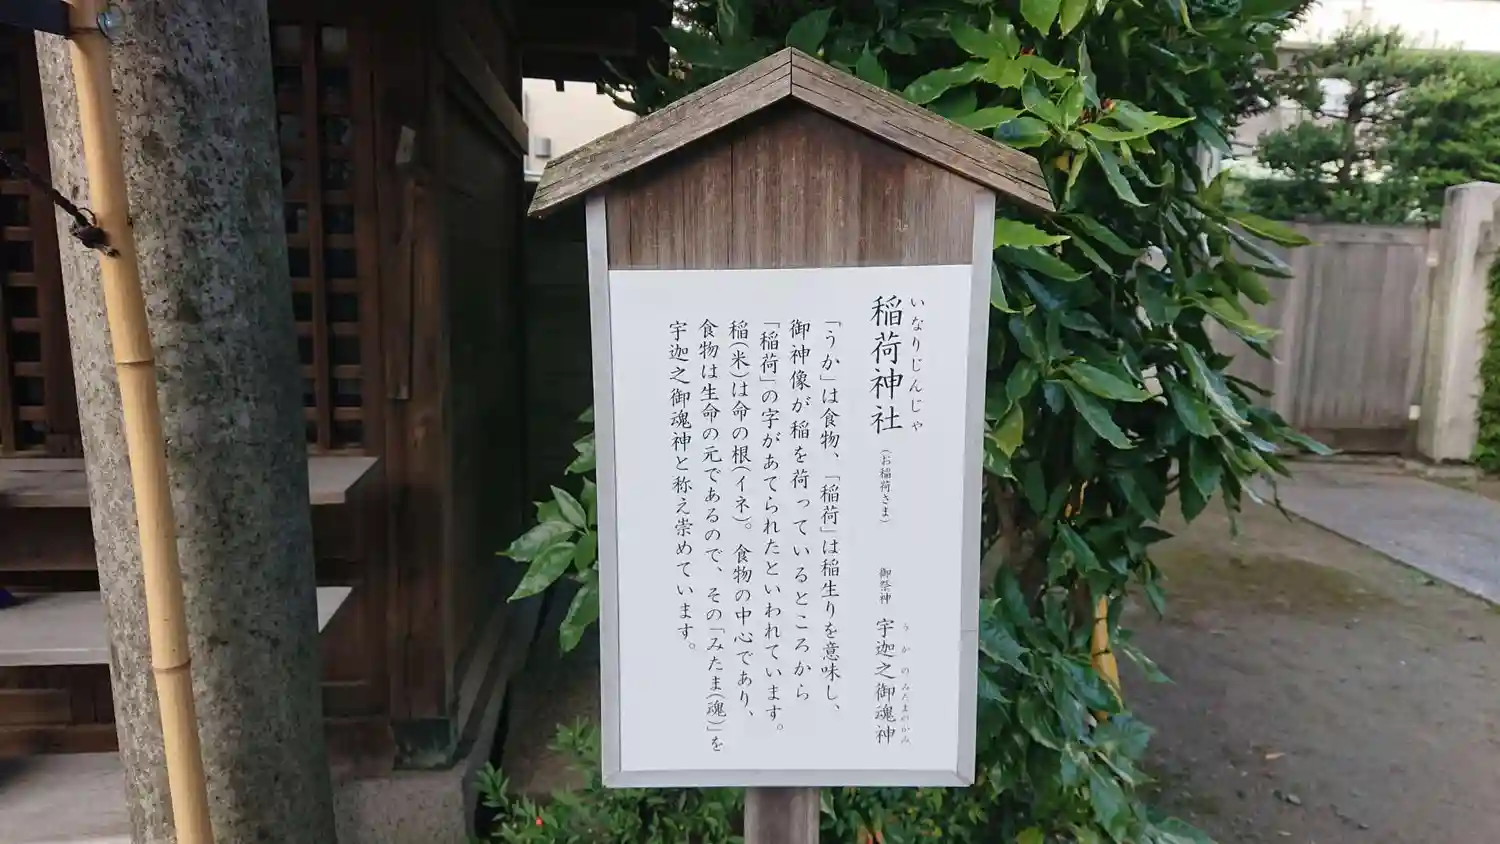 いなりじんじゃ
稲荷神社 (お稲荷さま) 御祭神 宇迦之御魂神
うかのみたまのかみ
「うか」は食物、「稲荷」は稲生りを意味し、
御神像が稲を荷っているところから
「稲荷」の字があてられたといわれています。
稲(米)は命の根(イネ)。食物の中心であり、
食物は生命の元であるので、その「みたま(魂)」を
宇迦之御魂神と称え崇めています。